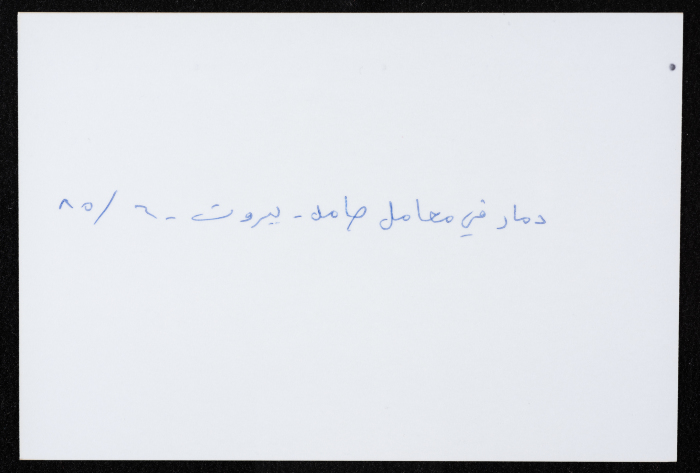 دمار في معامل صامد - بيروت - ٦ / ٨٥